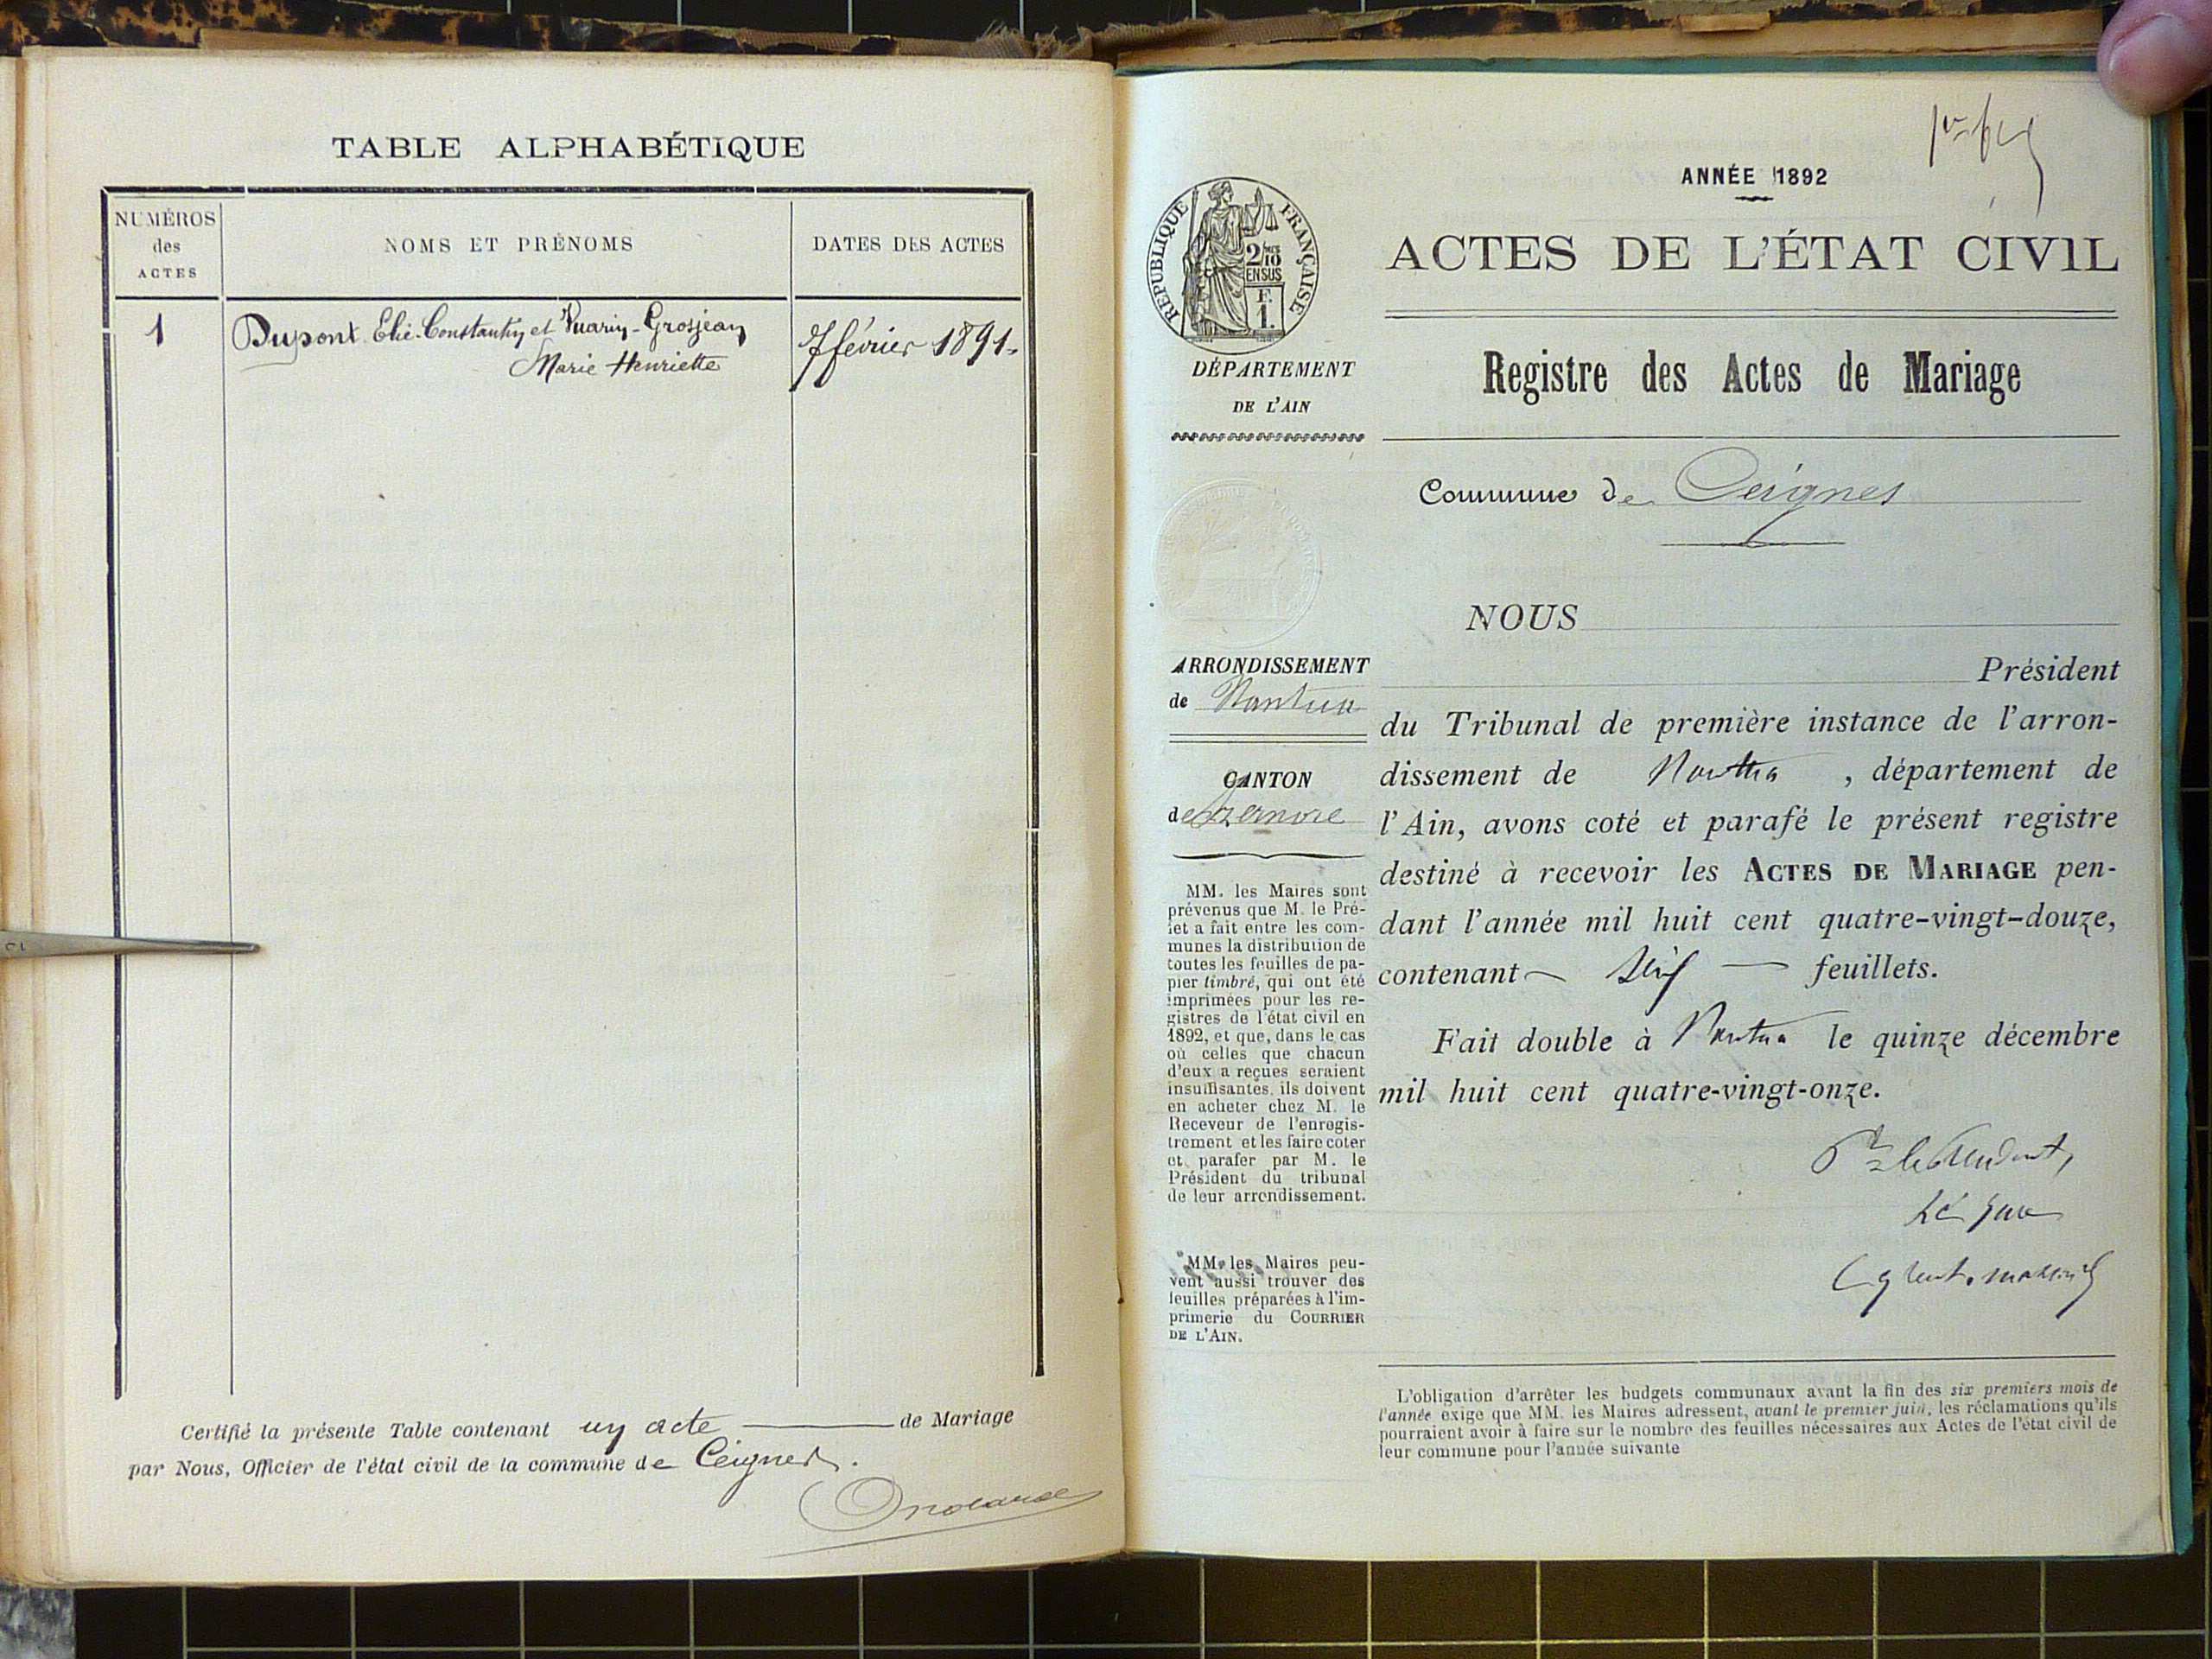 TABLE ALPHABÉTIQUE
NUMÉROS
des
ACTES
NOMS ET PRÉNOMS
DATES DES ACTES
1
Dupont Elie-Constantin et Vuarin-Grosjean
Marie Henriette
7 février 1891.
Certifié la présente Table contenant un acte de Mariage
par Nous, Officier de l'état civil de la commune de Ceignes.
ANNÉE 1892
RÉPUBLIQUE FRANÇAISE
2/10
EN SUS
F.
1.
ACTES DE L'ÉTAT CIVIL
DÉPARTEMENT
DE L'AIN
Registre des Actes de Mariage
Commune de Ceignes
NOUS
ARRONDISSEMENT
de Nantua
CANTON
de Izernore
MM. les Maires sont
prévenus que M. le Pré-
fet a fait entre les com-
munes la distribution de
toutes les feuilles de pa-
pier timbré, qui ont été
imprimées pour les re-
gistres de l'état civil en
1892, et que, dans le cas
où celles que chacun
d'eux a reçues seraient
insuffisantes, ils doivent
en acheter chez M. le
Receveur de l'enregis-
trement et les faire coter
et parafer par M. le
Président du tribunal
de leur arrondissement.
MM. les Maires peu-
vent aussi trouver des
feuilles préparées à l'im-
primerie du COURRIER
DE L'AIN.
Président
du Tribunal de première instance de l'arron-
dissement de Nantua, département de
l'Ain, avons coté et parafé le présent registre
destiné à recevoir les ACTES DE MARIAGE pen-
dant l'année mil huit cent quatre-vingt-douze,
contenant feuillets.
Fait double à Nantua le quinze décembre
mil huit cent quatre-vingt-onze.
L'obligation d'arrêter les budgets communaux avant la fin des six premiers mois de
l'année exige que MM. les Maires adressent, avant le premier juin, les réclamations qu'ils
pourraient avoir à faire sur le nombre des feuilles nécessaires aux Actes de l'état civil de
leur commune pour l'année suivante